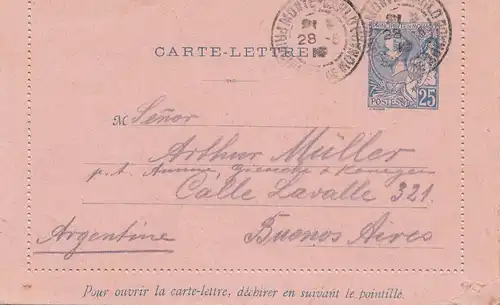 CARTE-LETTRE
28
POSTES 25
M Señor
Arthur Müller
Calle Lavalle 321.
Argentine
Buenos Aires
Pour ouvrir la carte-lettre, déchirer en suivant le pointillé.